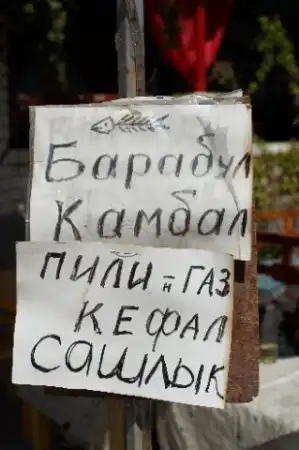 Барабул
Камбал
ПИЛИ-Н ГАЗ
КЕФАЛ
САШЛЫК